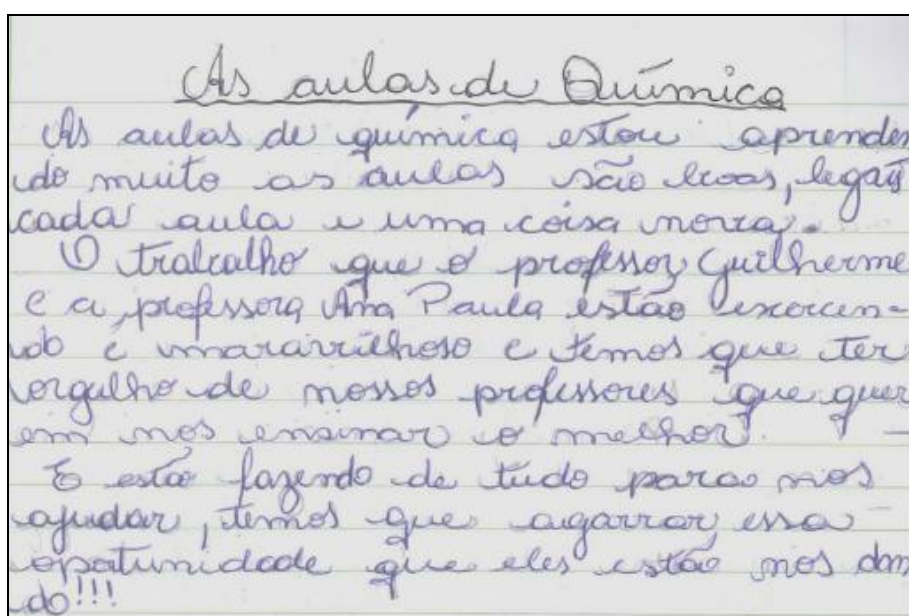 As aulas de Química
As aulas de química estou aprenden
do muito as aulas são boas, legais
cada aula e uma coisa nova.
O trabalho que o professor Guilherme
e a professora Ana Paula estão exercen-
do é maravilhoso e temos que ter
orgulho de nossos professores que quer
em nos ensinar o melhor.
E estão fazendo de tudo para nos
ajudar, temos que agarrar essa
opatunidade que eles estão nos dan
do!!!